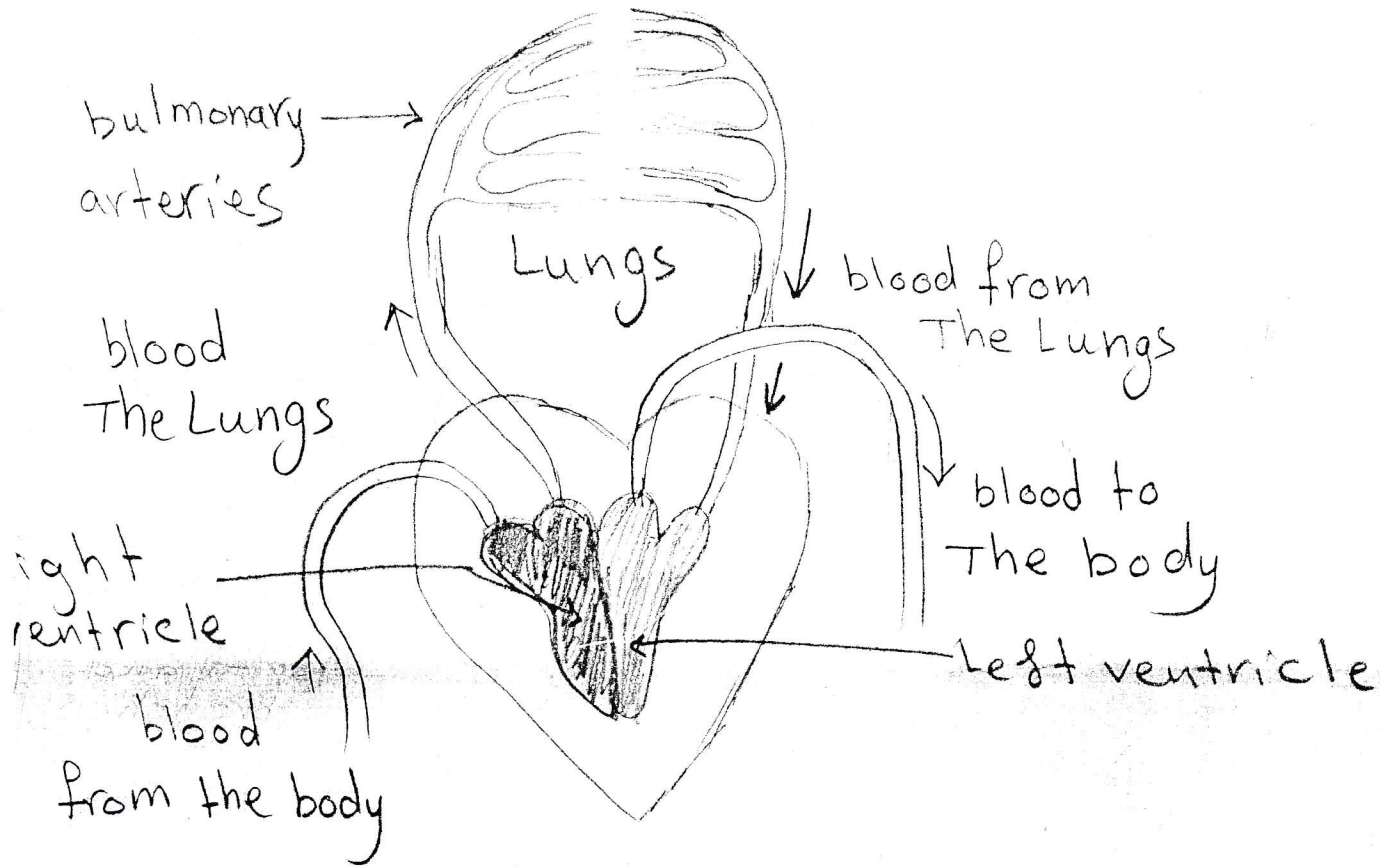 bulmonary
arteries
Lungs
blood from
The Lungs
blood
The Lungs
blood to
The body
ight
entricle
Left ventricle
blood
from the body